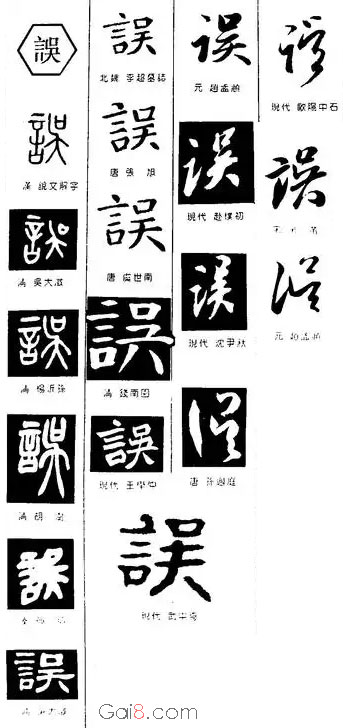 誤
誤
漢 說文解字
誤
清 吳大澂
誤
清 楊沂孫
誤
清 胡澍
誤
誤
清
誤
北魏 李超墓誌
誤
唐 張旭
誤
唐 虞世南
誤
清 錢南園
誤
現代 王學仲
誤
現代 武中奇
誤
元 趙孟頫
誤
現代 趙樸初
誤
現代 沈尹默
誤
唐 孫過庭
誤
現代 歐陽中石
誤
宋 米芾
誤
元 趙孟頫
Gai8.com